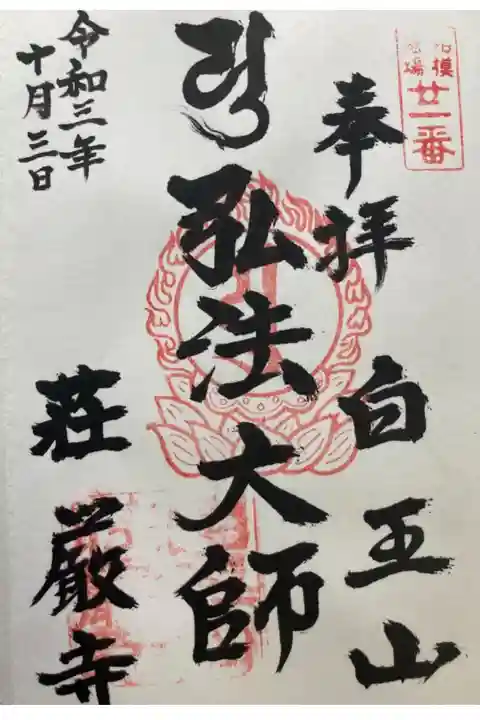 廿一番
奉拝
白王山
弘法大師
荘厳寺
令和三年
十月三日